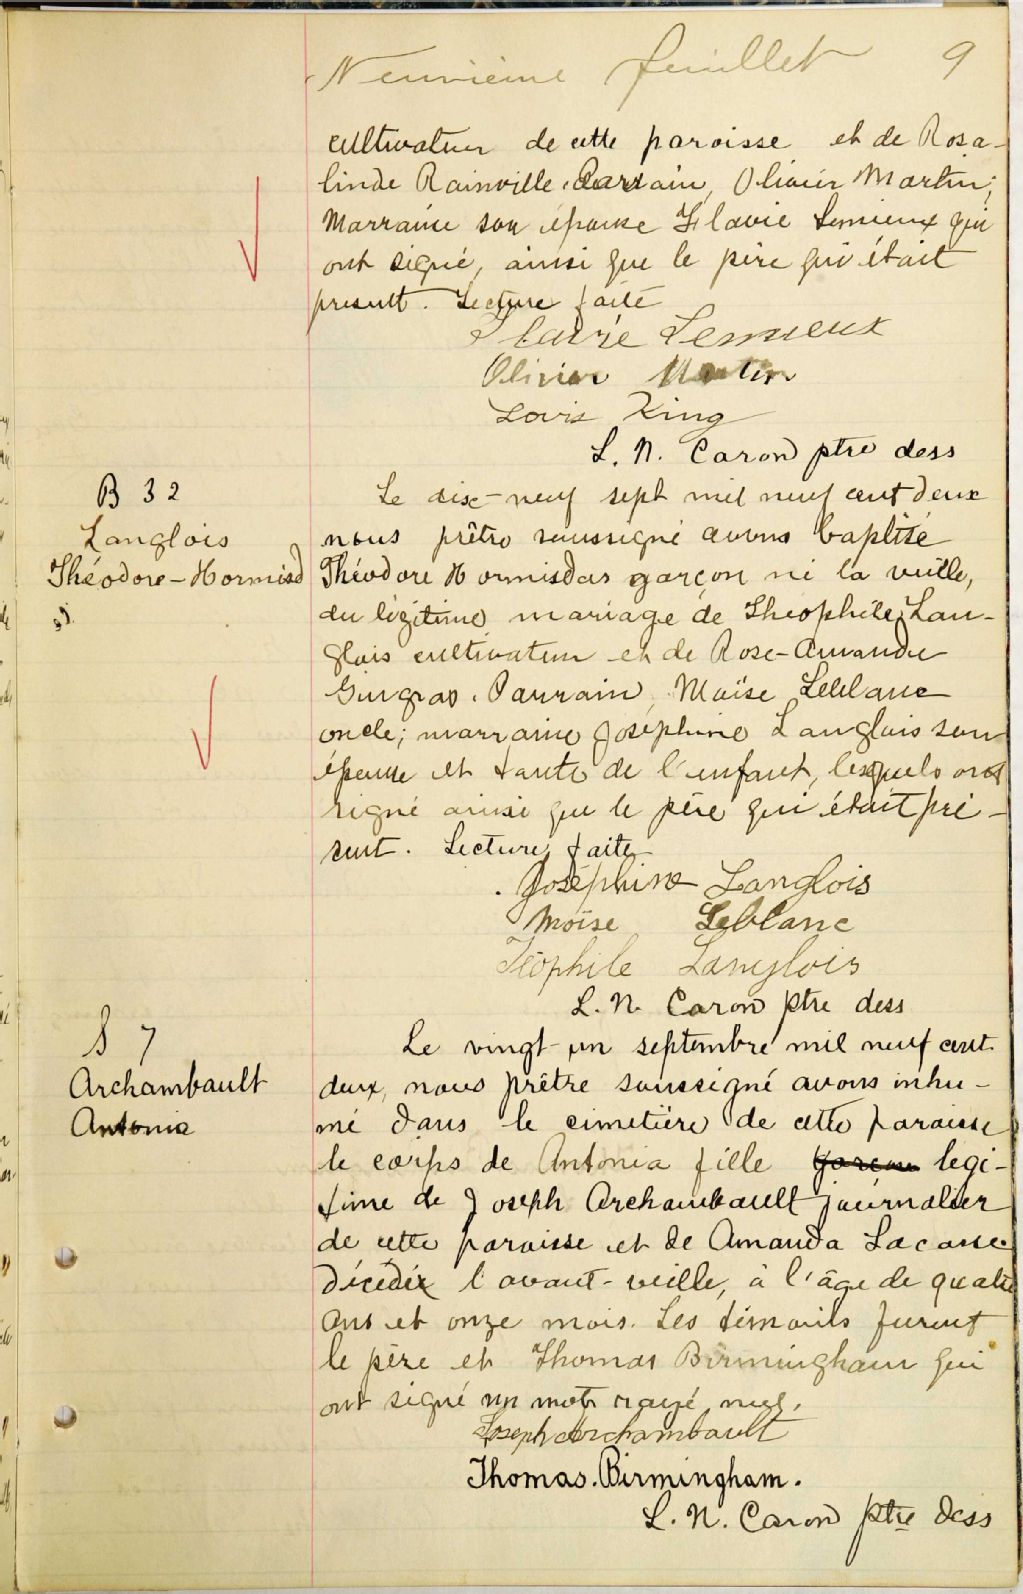 Neuvième feuillet 9
cultivateur de cette paroisse et de Rosa-
linde Rainville. Parrain, Olivier Martin;
Marraine son épouse Flavie Lemieux qui
ont signé, ainsi que le père qui était
present. Lecture faite
Flavie Lemieux
Olivier Martin
Louis King
L. N. Caron ptre dess
B 32
Langlois
Théodore-Hormisd
as.
Le dix-neuf sept mil neuf cent deux
nous prêtre soussigné avons baptisé
Théodore Hormisdas garçon né la veille,
du légitime mariage de Theophile Lan-
glois cultivateur et de Rose-Amanda
Gingras. Parrain, Moïse Leblanc
oncle; marraine Joséphine Langlois son
épouse et tante de l'enfant, lesquels ont
signé ainsi que le père qui était pré-
sent. Lecture faite
Joséphine Langlois
Moïse Leblanc
Téophile Langlois
L. N. Caron ptre dess
S 7
Archambault
Antonia
Le vingt-un septembre mil neuf cent
deux, nous prêtre soussigné avons inhu-
mé dans le cimetière de cette paroisse
le corps de Antonia fille garçon legi-
time de Joseph Archambault journalier
de cette paroisse et de Amanda Lacasse
décédée l'avant-veille, à l'âge de quatre
ans et onze mois. Les témoins furent
le père et Thomas Birmingham qui
ont signé un mot rayé nul.
Joseph Archambault
Thomas. Birmingham.
L. N. Caron ptre dess